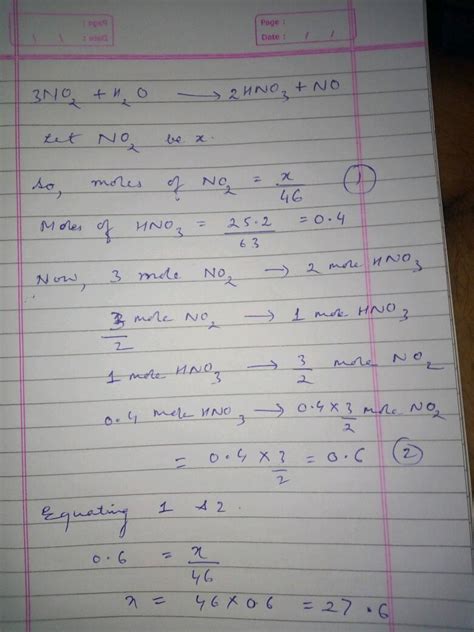 Page :
Date : / /
3NO₂ + H₂O ⟶ 2HNO₃ + NO
Let NO₂ be x.
So, moles of NO₂ = x/46 ①
Moles of HNO₃ = 25.2/63 = 0.4
Now, 3 mole NO₂ → 2 mole HNO₃
3/2 mole NO₂ → 1 mole HNO₃
1 mole HNO₃ → 3/2 mole NO₂
0.4 mole HNO₃ → 0.4 × 3/2 mole NO₂
= 0.4 × 3/2 = 0.6 ②
Equating 1 & 2.
0.6 = x/46
x = 46 × 0.6 = 27.6